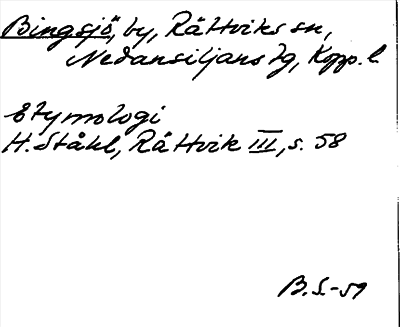 Bingsjö, by, Rättviks sn,
Nedansiljans tg, Kopp. l.
Etymologi
H. Ståhl, Rättvik III, s. 58
B.S.-59